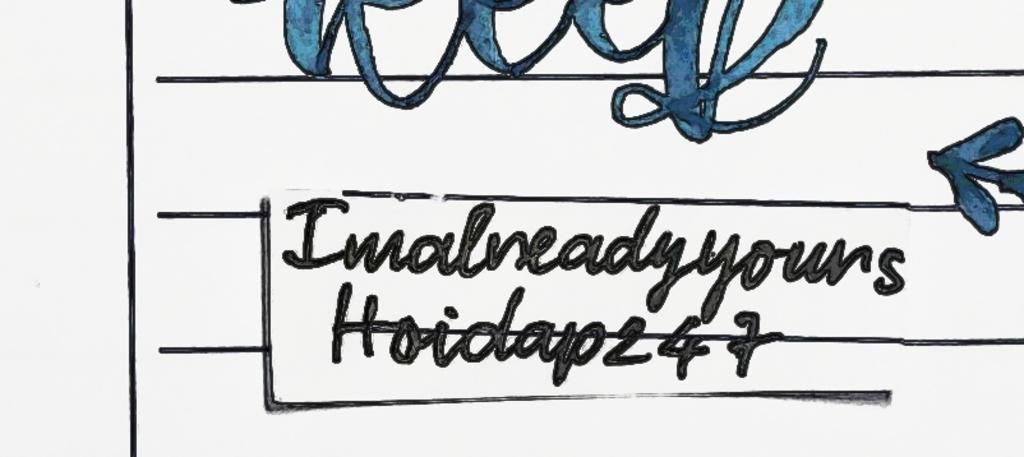 Imalreadyyours
Hoidap247